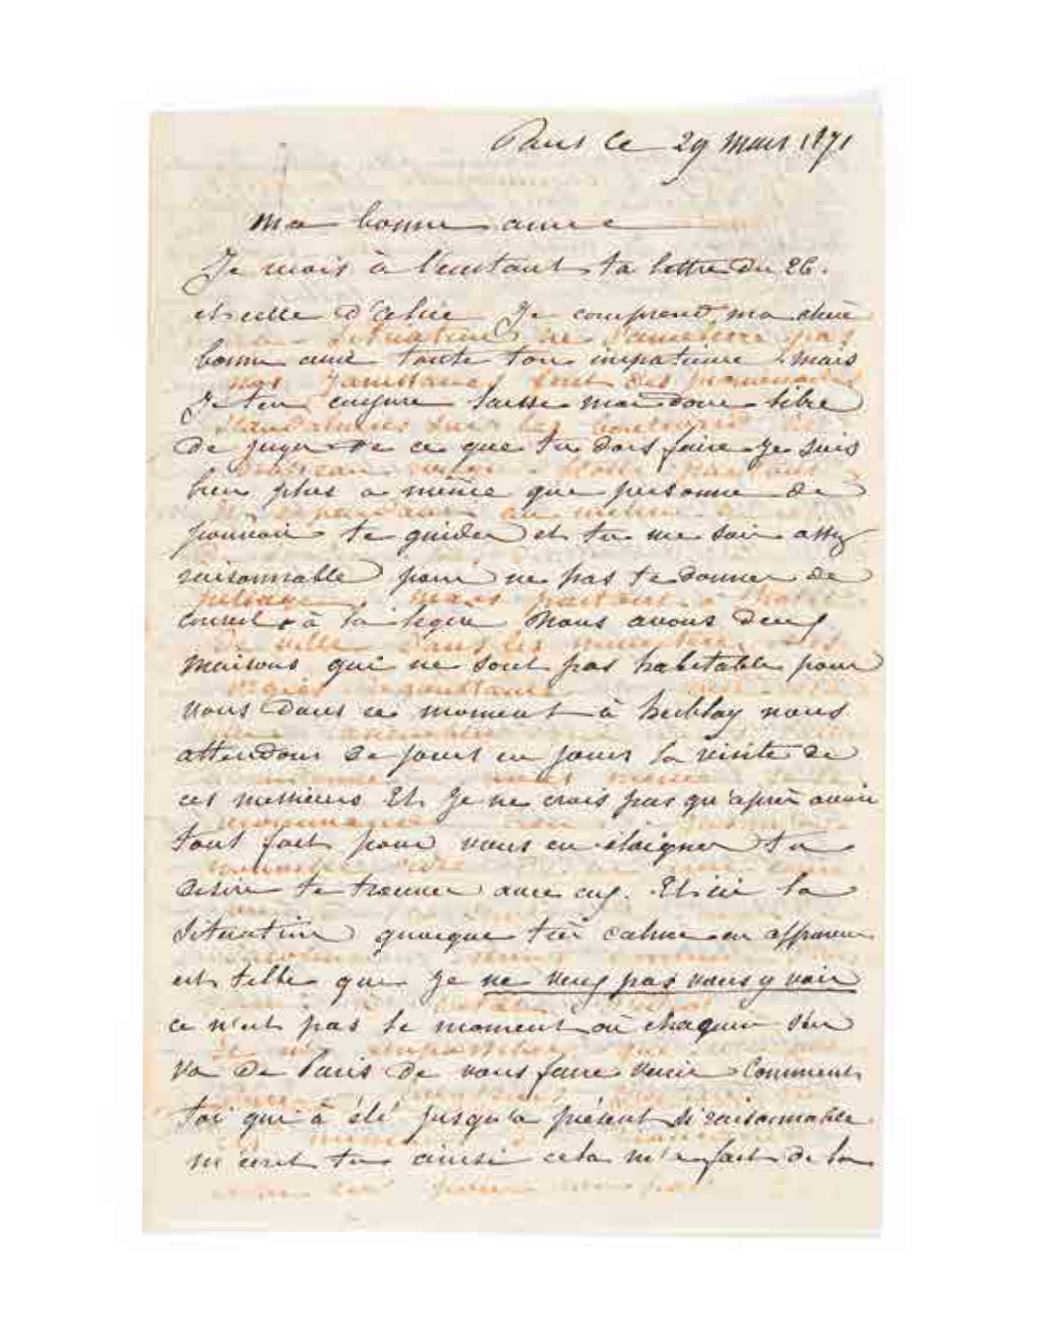 Paris Ce 29 mars 1871
Ma bonne amie
Je reçois à l'instant ta lettre du 26.
et celle d'Aline Je comprend, ma chère
bonne amie toute ton impatience mais
Je t'en conjure laisse moi donc libre
de juger de ce que tu dois faire Je suis
bien plus a même que personne de
pouvoir te guider et tu me sais assez
raisonnable pour ne pas te donner de
conseil à la légère Nous avons deux
maisons qui ne sont pas habitable pour
vous dans ce moment à nous
attendons de jours en jours la visite de
ces messieurs Et Je ne crois pas qu'après avoir
tout fait pour vous en éloigner tu
désire te trouver avec eux. Et ici la
situation quoique très calme en apparence
est telle que Je ne veux pas vous y voir
ce n'est pas le moment où chaqun s'en
va de Paris de vous faire venir Comment
toi qui à été jusqu'a présent si raisonnable
m'écrit tu ainsi cela m'a fait de la